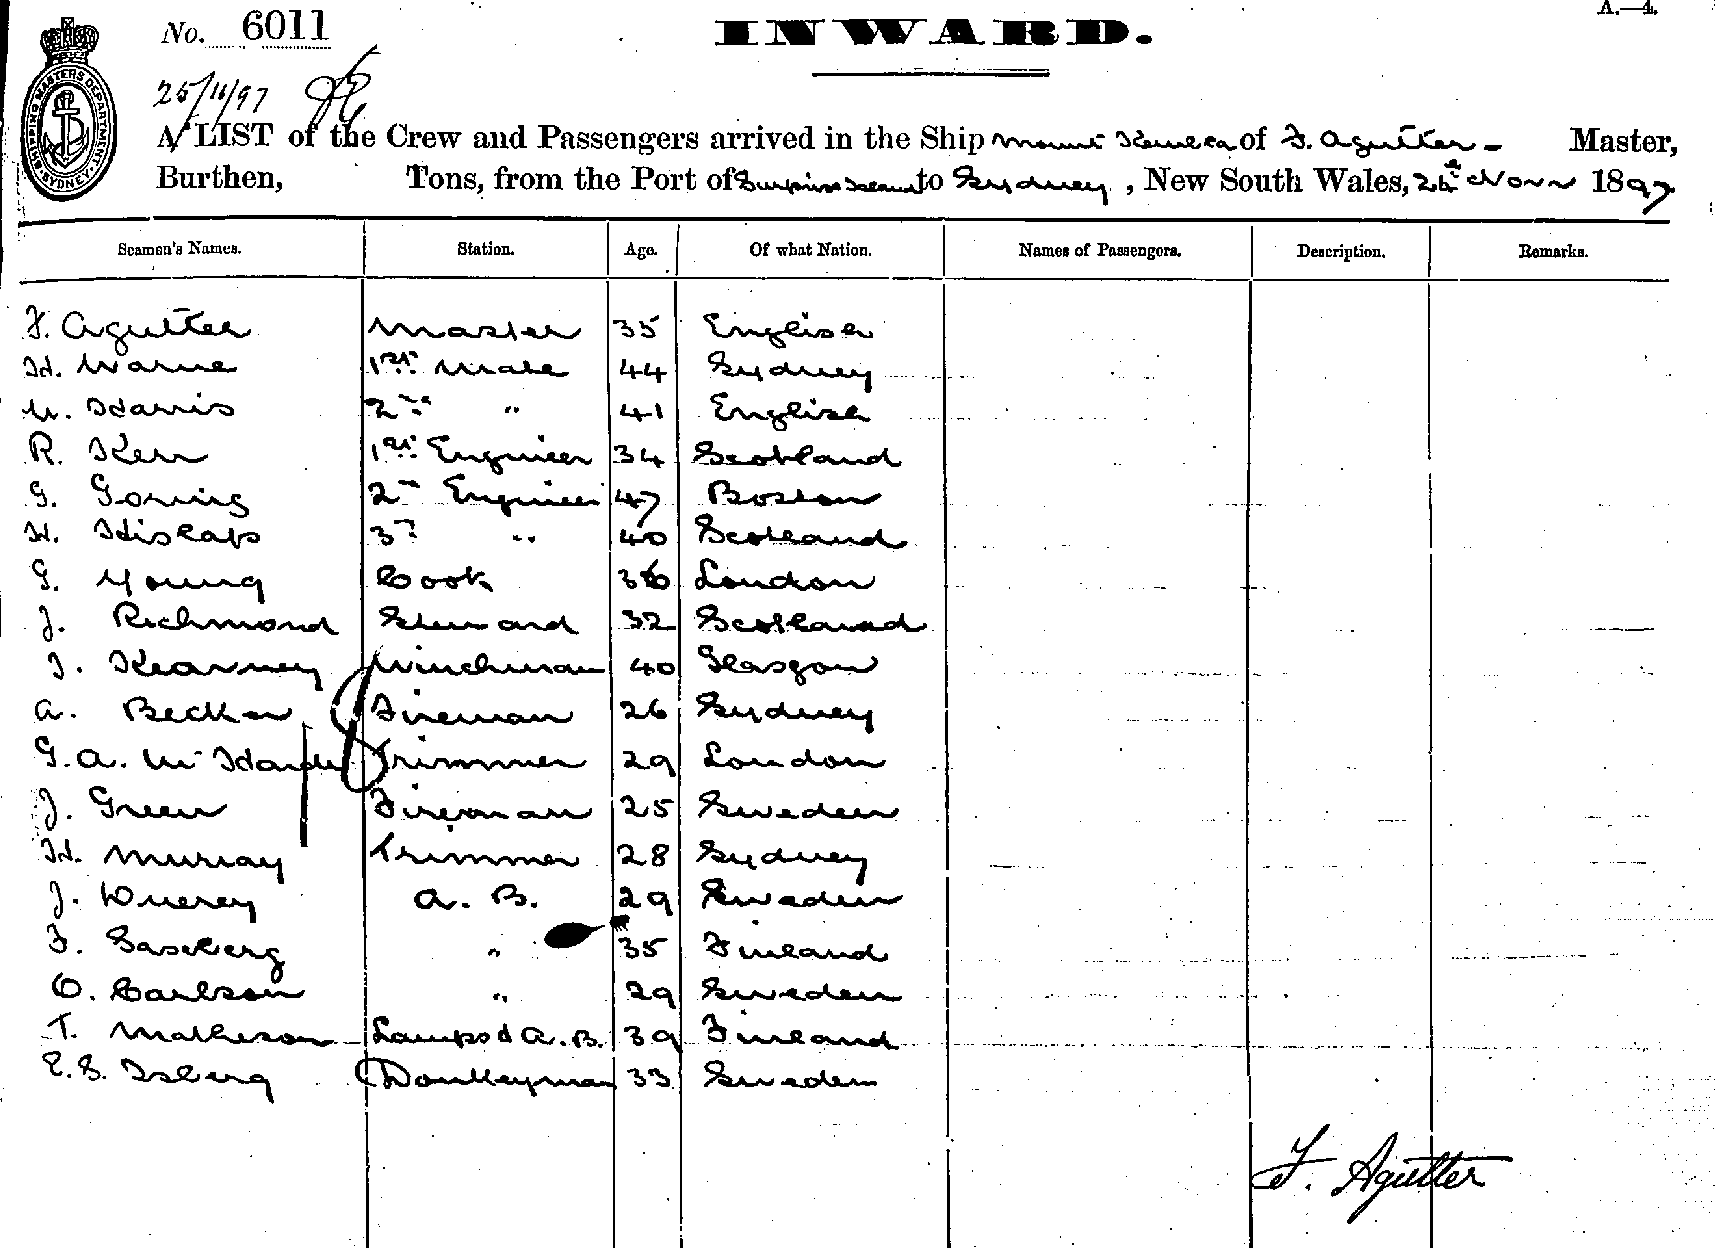 A.—4.
No. 6011
INWARD.
25/11/97
SHIPPING MASTERS DEPARTMENT SYDNEY
A LIST of the Crew and Passengers arrived in the Ship Mount Kembla of F. Agutter Master,
Burthen, Tons, from the Port of Surprise Island to Sydney, New South Wales, Novr 1897
Seamen's Names. Station. Age. Of what Nation. Names of Passengers. Description. Remarks.
F. Agutter Master 35 English
H. Warne 1st Mate 44 Sydney
W. Harris 2nd " 41 English
R. Kerr 1st Engineer 34 Scotland
G. Goring 2nd Engineer 47 Boston
H. Hislop 3rd " 40 Scotland
G. Young Cook 36 London
J. Richmond Steward 32 Scotland
J. Kearney Winchman 40 Glasgow
A. Becker Fireman 26 Sydney
G. A. Trimmer 29 London
J. Green Fireman 25 Sweden
H. Murray Trimmer 28 Sydney
J. A. B. 29 Sweden
F. " 35 Finland
O. Carlson " 29 Sweden
T. Matheson Lamps & A. B. 39 Finland
E. S. Isberg Donkeyman 33 Sweden
F. Agutter